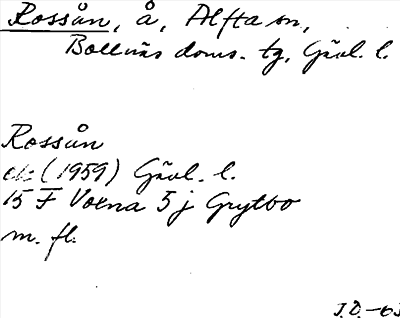 Rossån, å, Alfta sn,
Bollnäs doms. tg, Gävl. l.
Rossån
ek (1959) Gävl. l.
15 F Voxna 5 j Grytbo
m. fl.
J.D. -63